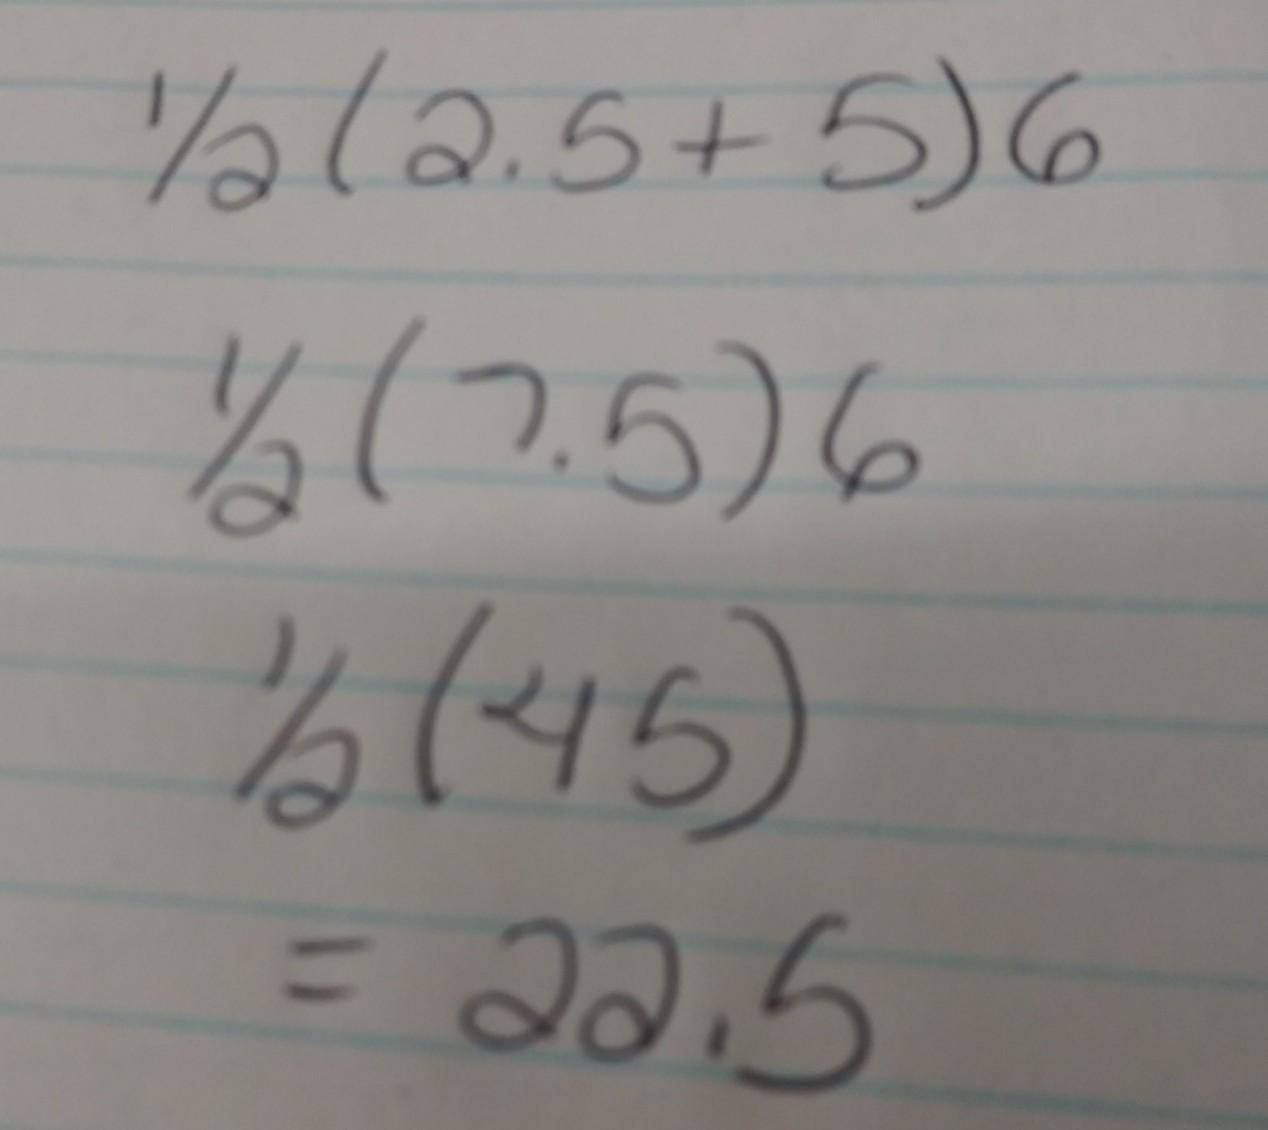 1/2(2.5+5)6
1/2(7.5)6
1/2(45)
= 22.5